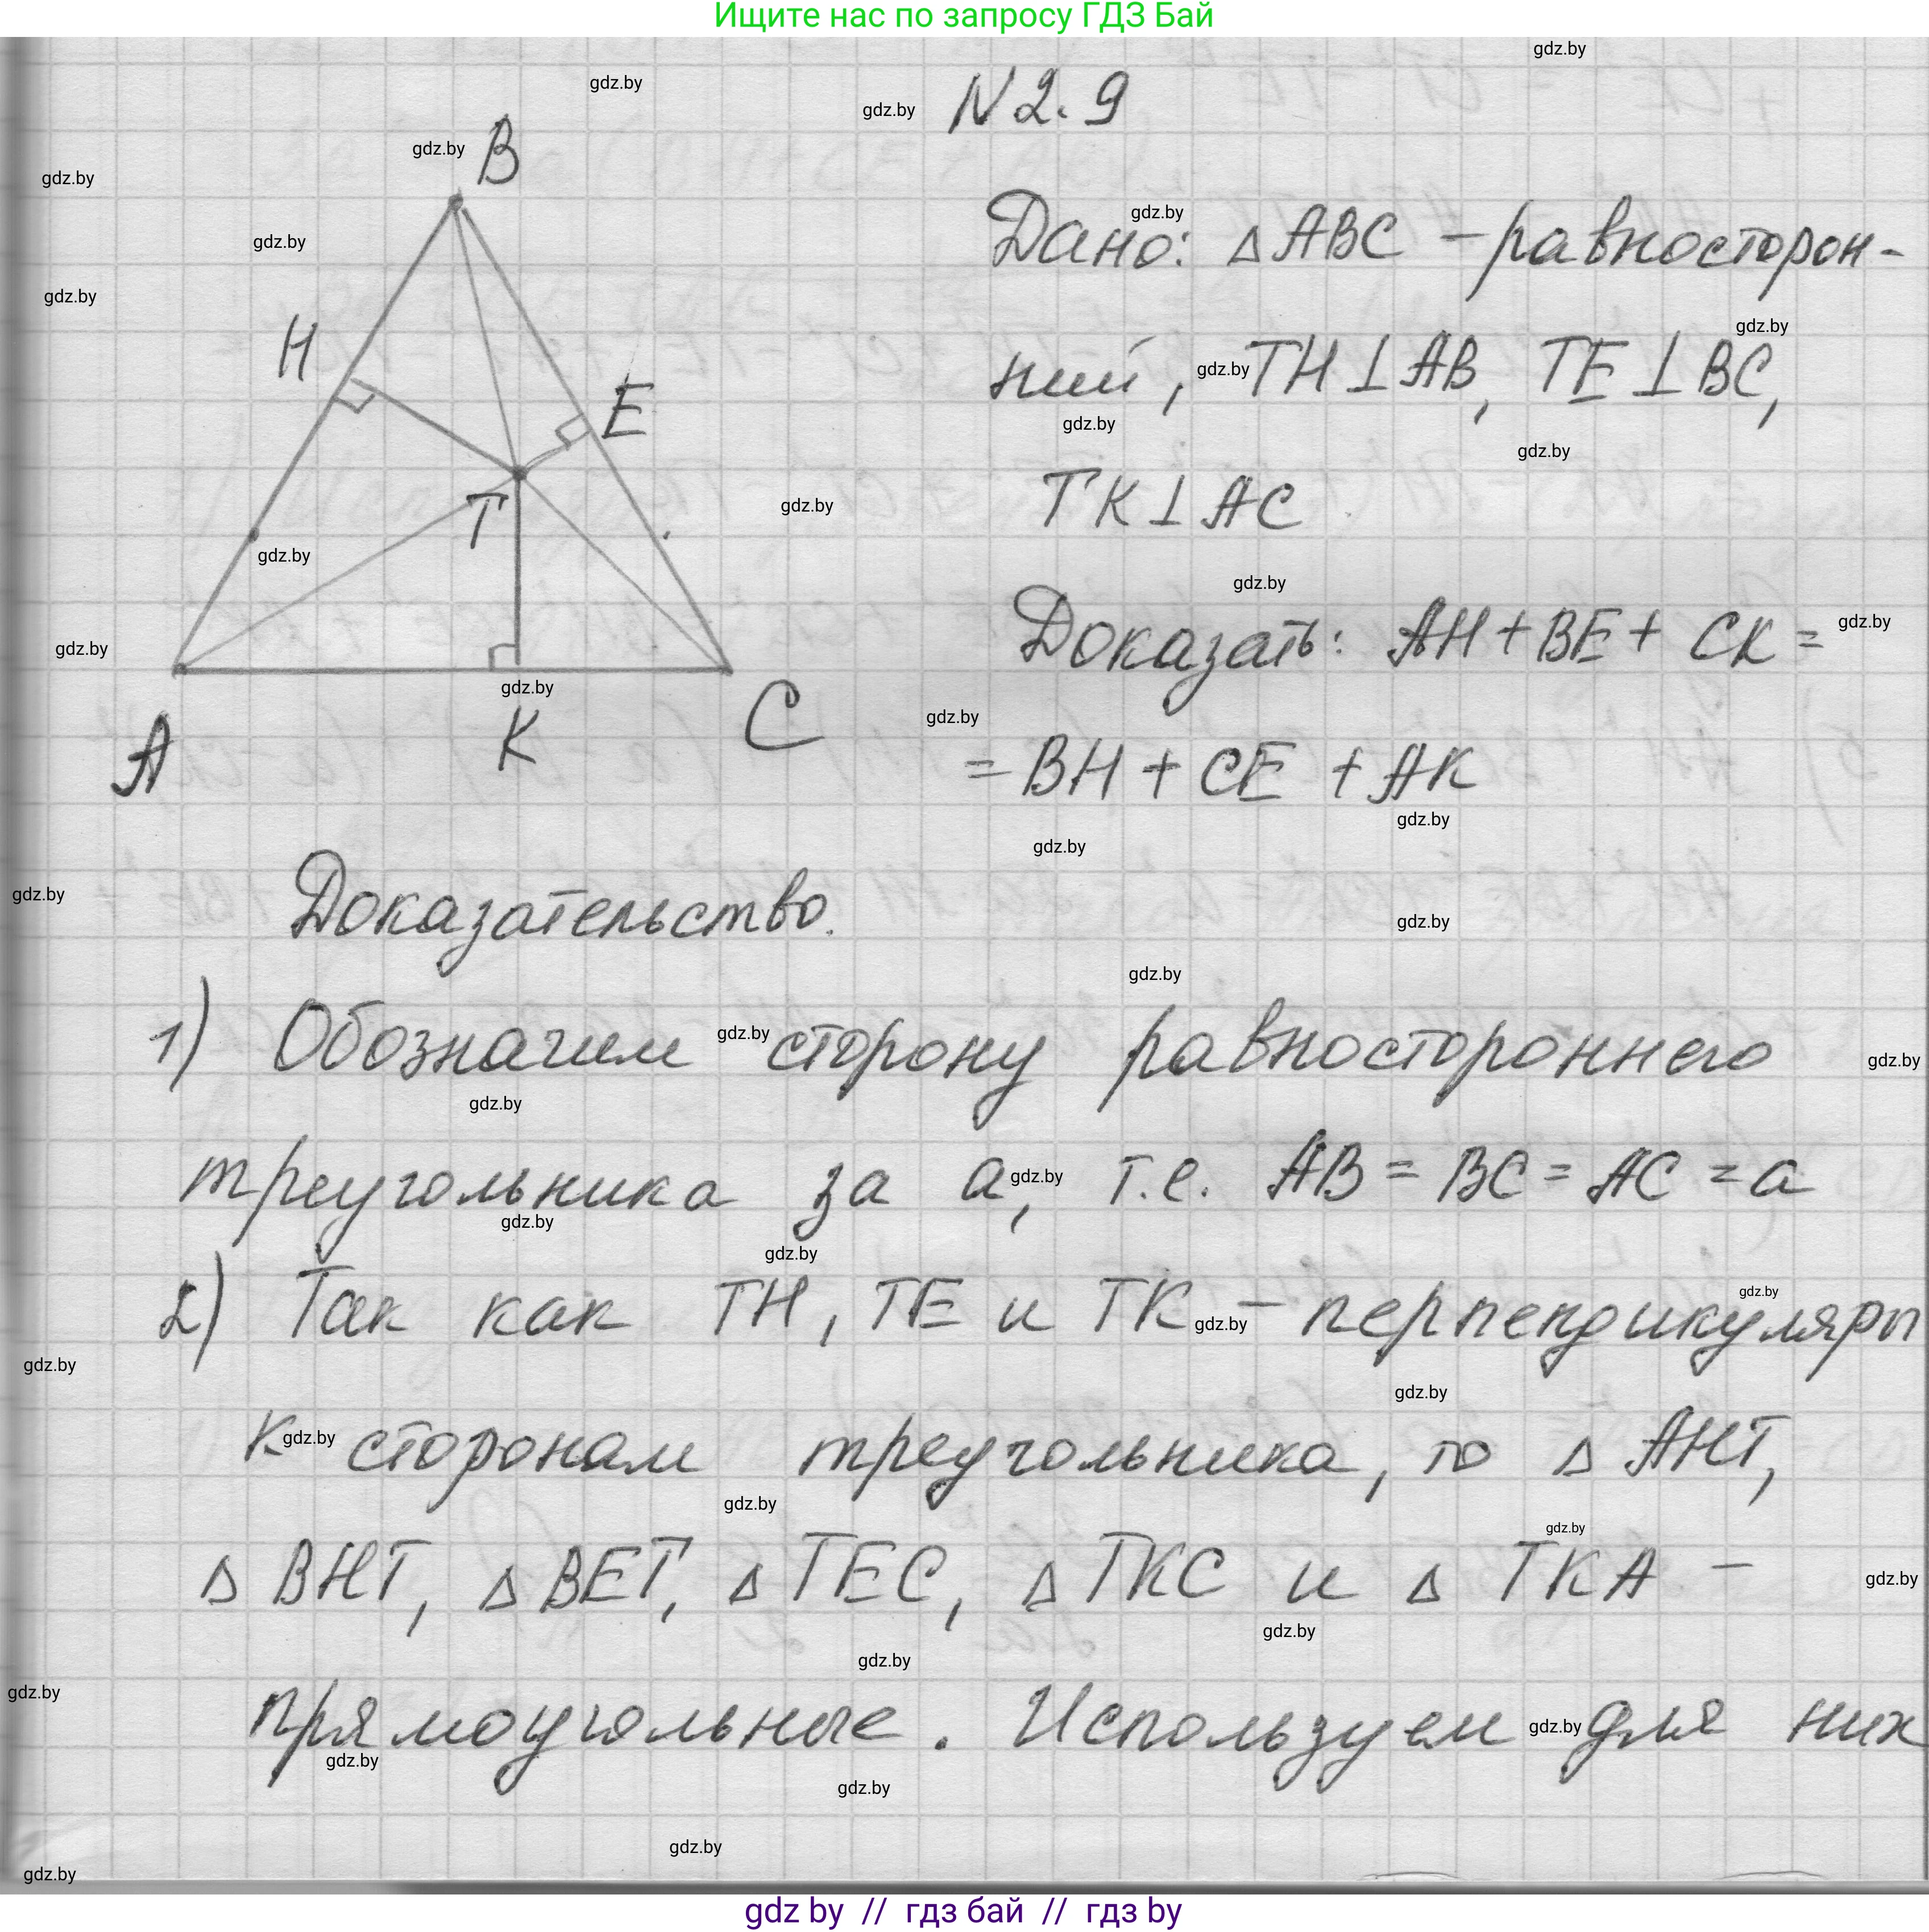 Ищите нас по запросу ГДЗ Бай
N 2.9
B
H
E
T
A
K
C
Дано: △ABC – равносторон-
ний, TH⊥AB, TE⊥BC,
TK⊥AC
Доказать: AH + BE + CK =
= BH + CE + AK
Доказательство.
1) Обозначим сторону равностороннего
треугольника за a, т.е. AB = BC = AC = a
2) Так как TH, TE и TK – перпендикуляры
к сторонам треугольника, то △AHT,
△BHT, △BET, △TEC, △TKC и △TKA –
прямоугольные. Используем для них
gdz.by
gdz by // гдз бай // гдз by